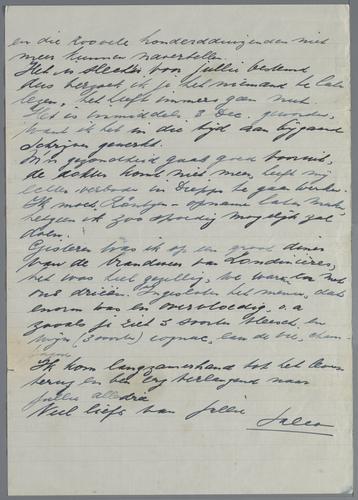 en die zoovele honderdduizenden niet
meer kunnen navertellen.
Het is slechts voor jullie bestemd
dus verzoek ik je het niemand te laten
lezen, het heeft immers geen nut
Het is inmiddels 3 Dec. geworden,
want ik heb in die tijd aan bijgaand
schrijven gewerkt.
Mijn gezondheid gaat goed vooruit,
de dokter komt niet meer, heeft mij
verboden in Dieppe te gaan werken.
Ik moet Röntgen-opname laten maken
hetgeen ik zoo spoedig mogelijk zal
doen.
Gisteren was ik op een groot diner
van de brandweer van Londinières,
het was heel gezellig, we waren er met
ons drieën. Ingesloten het menu, dat
enorm was en overvloedig, o.a
zooals je ziet 3 soorten vleesch, en
wijn (3 soorten) cognac, eau de vie, cham-
Ik kom langzamerhand tot het leven
terug en ben erg verlangend naar
jullie alle drie
Veel liefs van Jullie